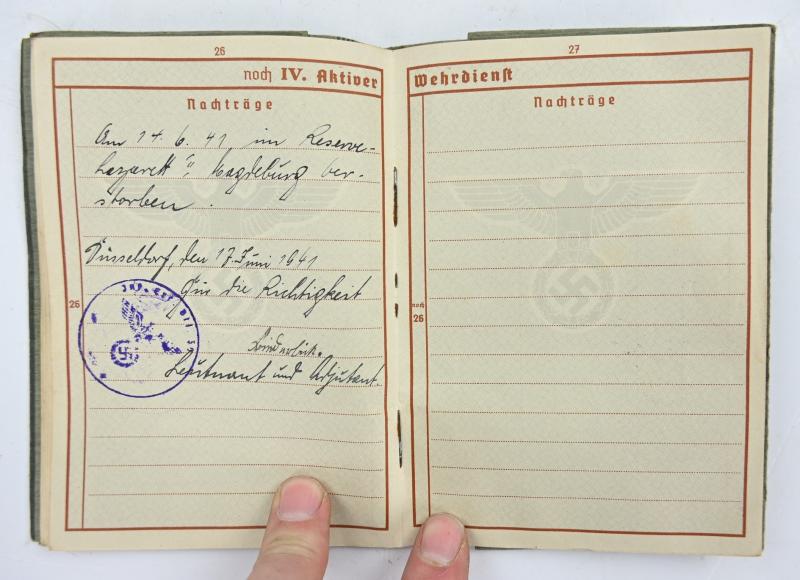 26
noch IV. Aktiver
Nachträge
Am 14. 6. 41 im Reserve-
lazarett Magdeburg ver-
storben.
Düsseldorf, den 17. Juni 1941
Für die Richtigkeit
Leutnant und Adjutant.
26
27
Wehrdienst
Nachträge
noch
26